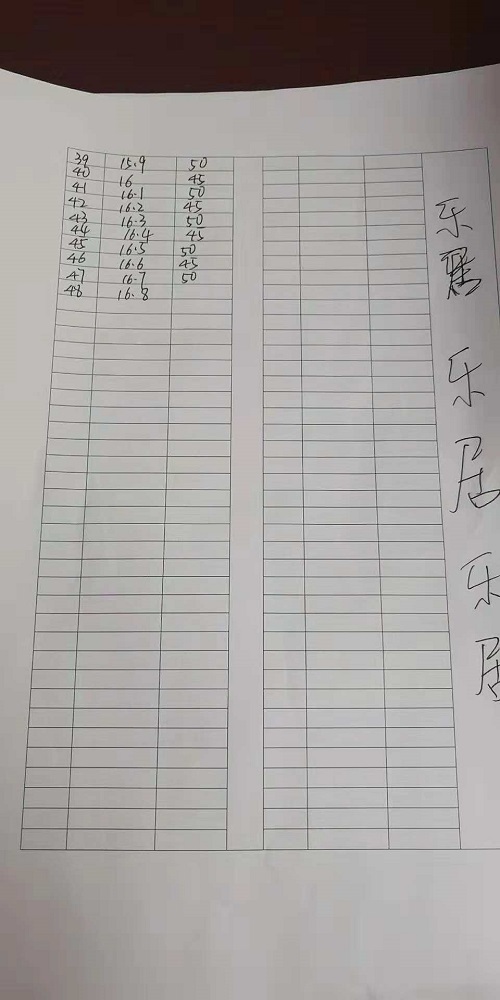 39 15.9 50
40 16 45
41 16.1 50
42 16.2 45
43 16.3 50
44 16.4 45
45 16.5 50
46 16.6 45
47 16.7 50
48 16.8
乐
乐
居
乐
居